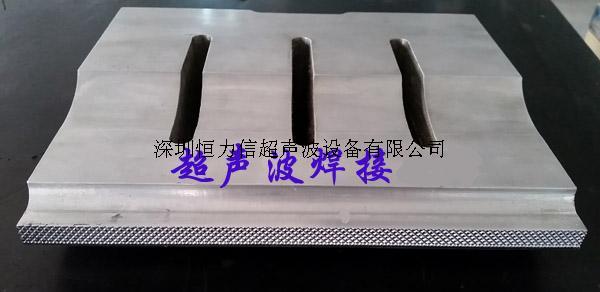 深圳恒力信超声波设备有限公司
超声波焊接